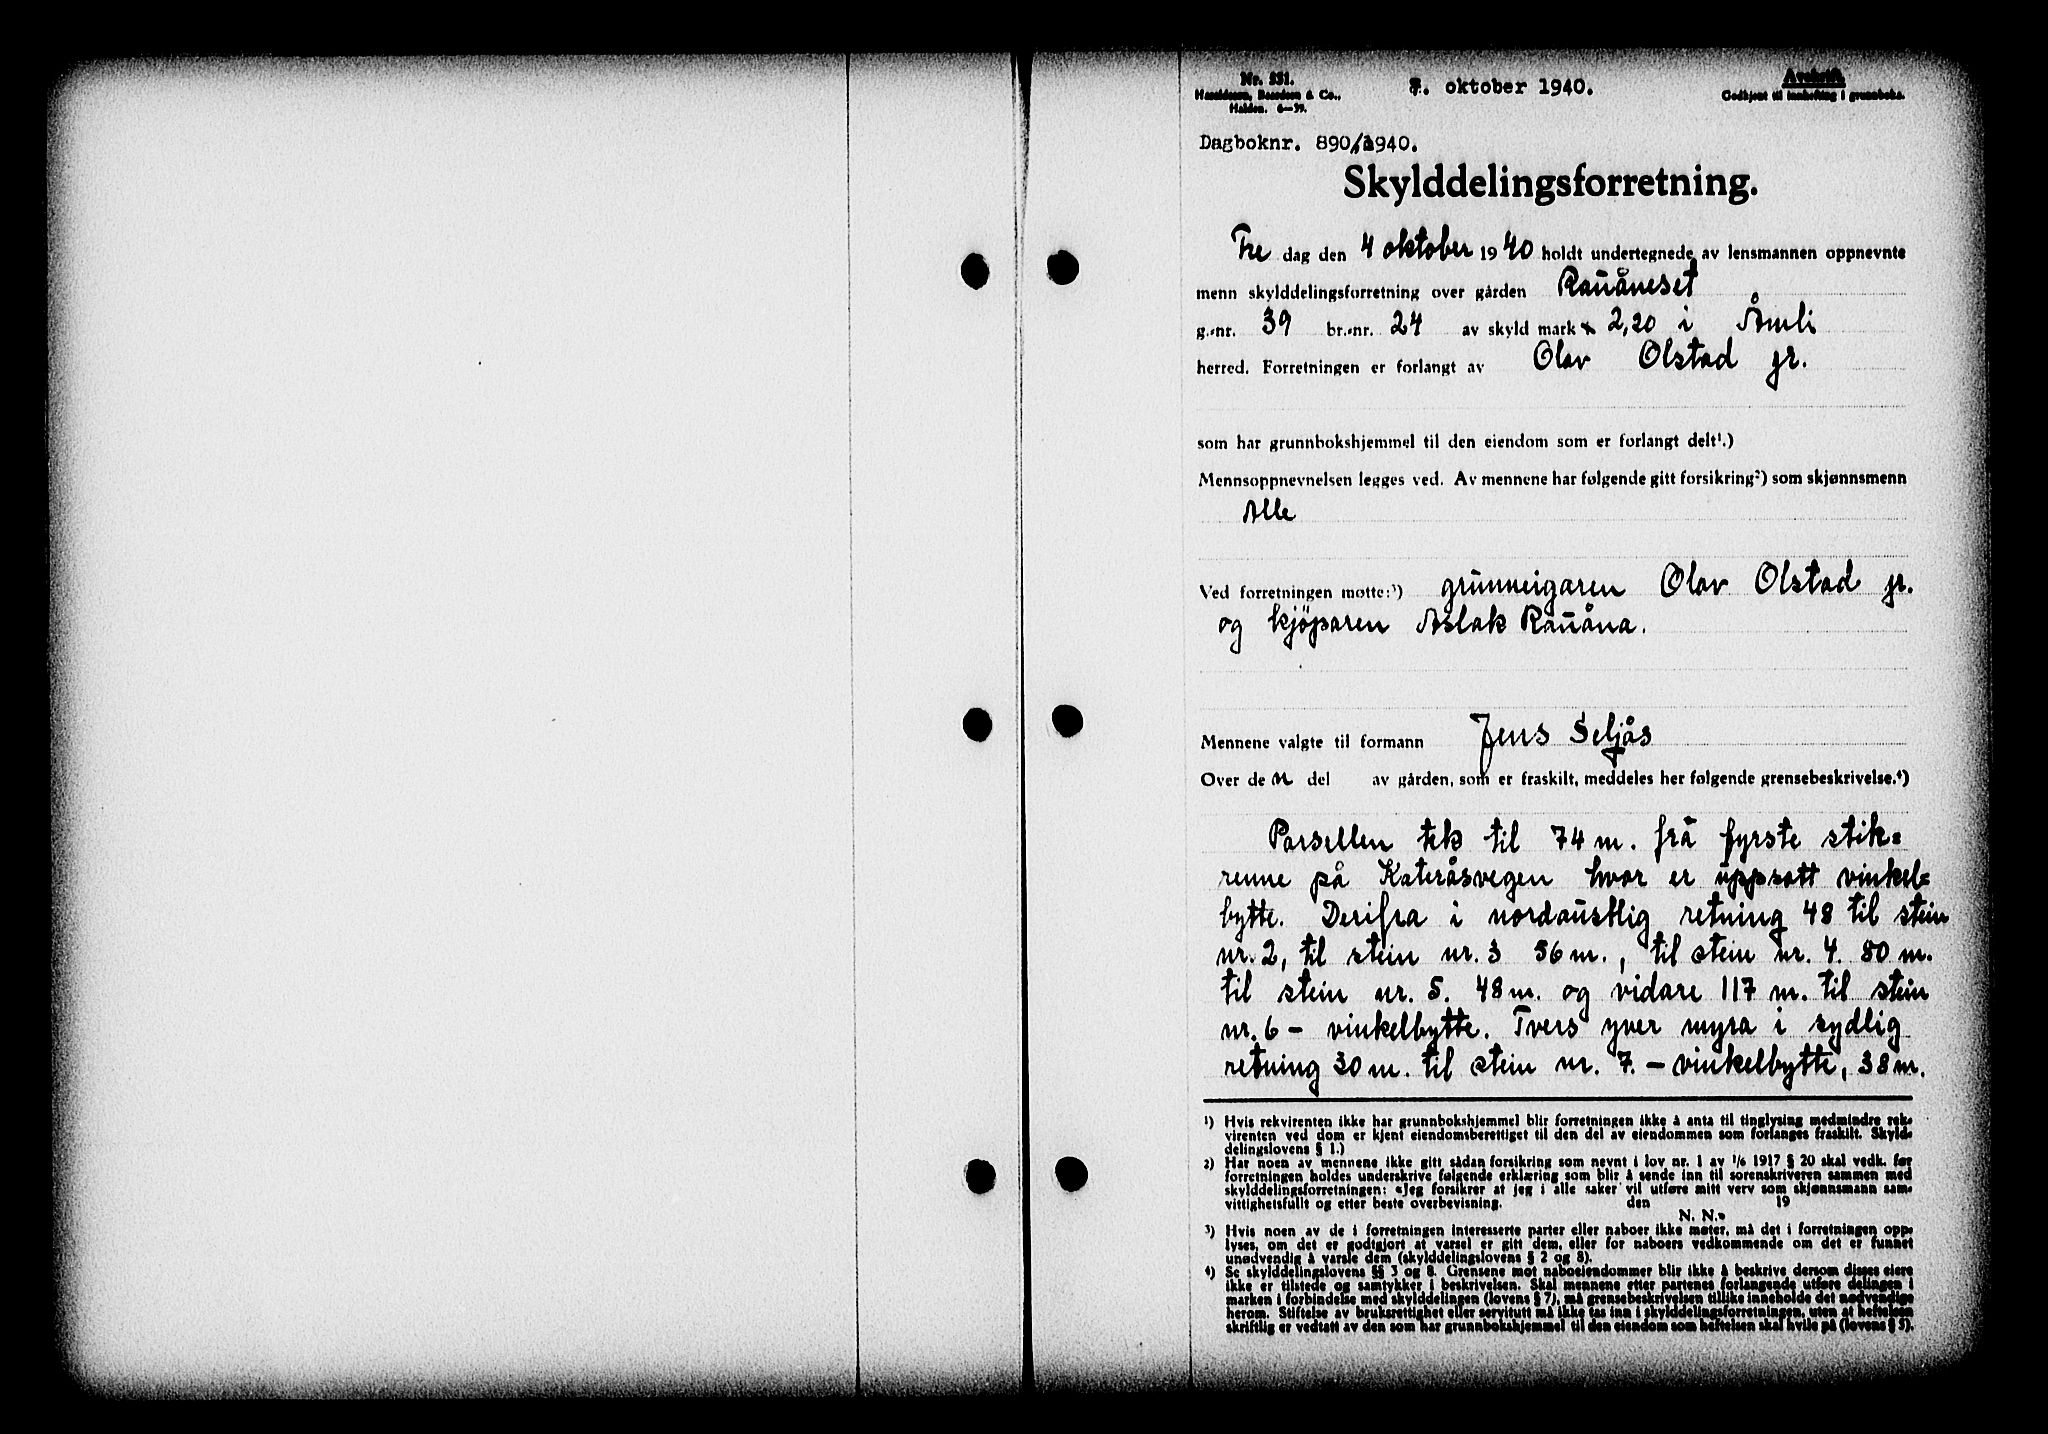 Nr. 551.
Haraldssen, Bossdsen & Co.,
Halden. 6—39.
7. oktober 1940.
Avskrift.
Godkjent til innhefting i grunnboka.
Dagboknr. 890/1940.
Skylddelingsforretning.
Fre dag den 4 oktober 1940 holdt undertegnede av lensmannen oppnevnte
menn skylddelingsforretning over gården Rauåneset
g.-nr. 39 br.-nr. 24 av skyld mark 2,20 i Åmli
herred. Forretningen er forlangt av Olav Olstad jr.
som har grunnbokshjemmel til den eiendom som er forlangt delt¹.)
Mennsoppnevnelsen legges ved. Av mennene har følgende gitt forsikring²) som skjønnsmenn
Alle
Ved forretningen møtte:³) grunneigaren Olav Olstad jr.
og kjöparen Aslak Rauåna.
Mennene valgte til formann Jens Seljås
Over den del av gården, som er fraskilt, meddeles her følgende grensebeskrivelse.⁴)
Parsellen tek til 74 m. frå fyrste stik=
renne på Kateråsvegen hvor er uppsatt vinkel=
bytte. Derifra i nordaustlig retning 48 til stein
nr. 2, til stein nr. 3 56 m., til stein nr. 4. 80 m.
til stein nr. 5. 48 m. og vidare 117 m. til stein
nr. 6 – vinkelbytte. Tvers yver myra i sydlig
retning 30 m. til stein nr. 7. – vinkelbytte, 38 m.
¹) Hvis rekvirenten ikke har grunnbokshjemmel blir forretningen ikke å anta til tinglysing medmindre rek-
virenten ved dom er kjent eiendomsberettiget til den del av eiendommen som forlanges fraskilt. Skyld-
delingslovens § 1.)
²) Har noen av mennene ikke gitt sådan forsikring som nevnt i lov nr. 1 av 1/6 1917 § 20 skal vedk. før
forretningen holdes underskrive følgende erklæring som blir å sende inn til sorenskriveren sammen med
skylddelingsforretningen: «Jeg forsikrer at jeg i alle saker vil utføre mitt verv som skjønnsmann sam-
vittighetsfullt og etter beste overbevisning. den 19
N. N.»
³) Hvis noen av de i forretningen interesserte parter eller naboer ikke møter, må det i forretningen opp-
lyses, om det er godtgjort at varsel er gitt dem, eller for naboers vedkommende om det er funnet
unødvendig å varsle dem (skylddelingslovens § 2 og 8).
⁴) Se skylddelingslovens §§ 3 og 8. Grensene mot naboeiendommer blir ikke å beskrive dersom disses eiere
ikke er tilstede og samtykker i beskrivelsen. Skal mennene etter partenes forlangende utføre delingen i
marken i forbindelse med skylddelingen (lovens § 7), må grensebeskrivelsen tillike inneholde det nødvendige
herom. Stiftelse av bruksrettighet eller servitutt må ikke tas inn i skylddelingsforretningen, uten at heftelsen
skriftlig er vedtatt av den som har grunnbokshjemmel til den eiendom som heftelsen skal hvile på (lovens § 5).